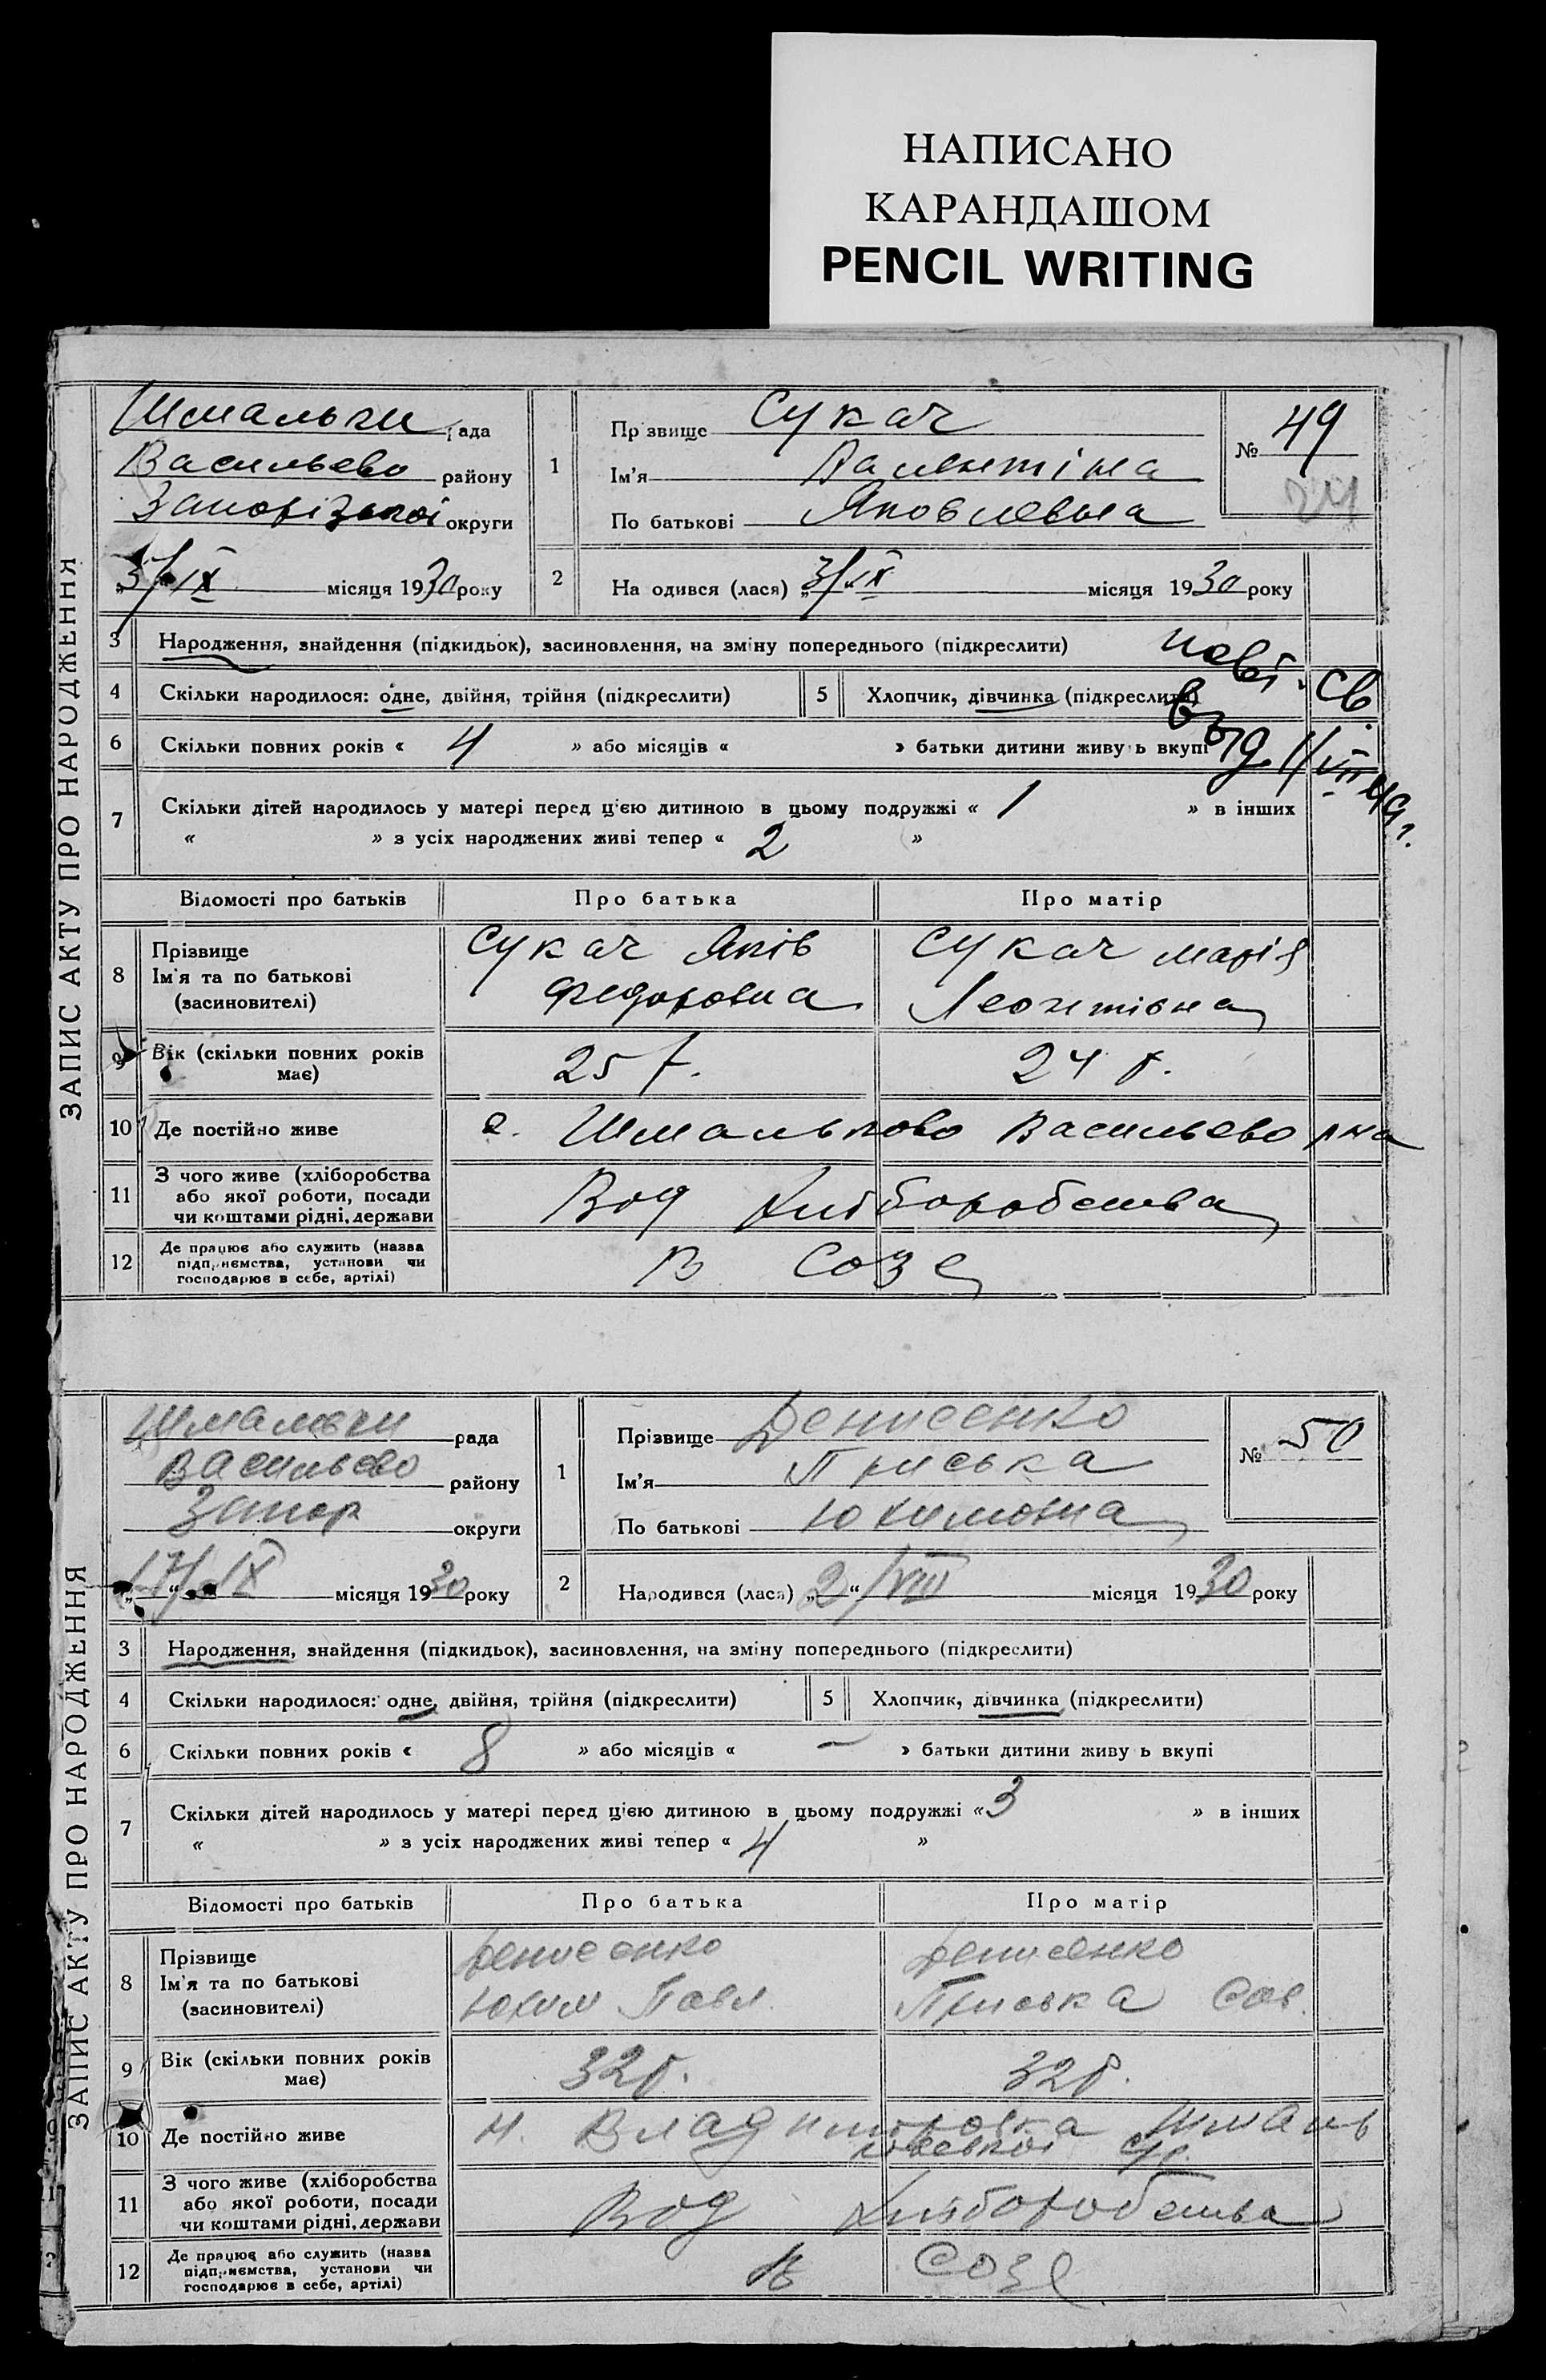 НАПИСАНО
КАРАНДАШОМ
PENCIL WRITING
ЗАПИС АКТУ ПРО НАРОДЖЕННЯ
Шмальки рада
Васильево району
Запорізької округи
„3/IX місяця 1930 року
1 Прізвище Сукач
Ім'я Валентіна
По батькові Яковлевна
№ 49
2 Народився (лася) „3/IX місяця 1930 року
3 Народження, знайдення (підкидьок), засиновлення, на зміну попереднього (підкреслити)
нові св.
выд. 11/VII 49г.
4 Скільки народилося: одне, двійня, трійня (підкреслити) 5 Хлопчик, дівчинка (підкреслити)
6 Скільки повних років « 4 » або місяців « » батьки дитини живу ь вкупі
7 Скільки дітей народилось у матері перед цією дитиною в цьому подружжі « 1 » в інших
« » з усіх народжених живі тепер « 2 »
Відомості про батьків Про батька Про матір
8 Прізвище
Ім'я та по батькові
(засиновителі)
Сукач Яків
Федоровна
Сукач Марія
Леонтівна
9 Вік (скільки повних років
має) 25 р. 24 р.
10 Де постійно живе с. Шмальково Васильево рна
11 З чого живе (хліборобства
або якої роботи, посади
чи коштами рідні, держави Вод хліборобства
12 Де працює або служить (назва
підприємства, установи чи
господарює в себе, артілі) В Созе
ЗАПИС АКТУ ПРО НАРОДЖЕННЯ
Шмальки рада
Васильево району
Запор округи
„17/IX місяця 1930 року
1 Прізвище Денисенко
Ім'я Приська
По батькові Юхимовна
№ 50
2 Народився (лася) „2“/VIII місяця 1930 року
3 Народження, знайдення (підкидьок), засиновлення, на зміну попереднього (підкреслити)
4 Скільки народилося: одне, двійня, трійня (підкреслити) 5 Хлопчик, дівчинка (підкреслити)
6 Скільки повних років « 8 » або місяців « — » батьки дитини живу ь вкупі
7 Скільки дітей народилось у матері перед цією дитиною в цьому подружжі « 3 » в інших
« » з усіх народжених живі тепер « 4 »
Відомості про батьків Про батька Про матір
8 Прізвище
Ім'я та по батькові
(засиновителі)
Денисенко
Юхим Павл.
Денисенко
Приська Сав.
9 Вік (скільки повних років
має) 32 р. 32 р.
10 Де постійно живе Н. Владимировка Шмаль
ковської с/р.
11 З чого живе (хліборобства
або якої роботи, посади
чи коштами рідні, держави Вод хліборобства
12 Де працює або служить (назва
підприємства, установи чи
господарює в себе, артілі) В Созе